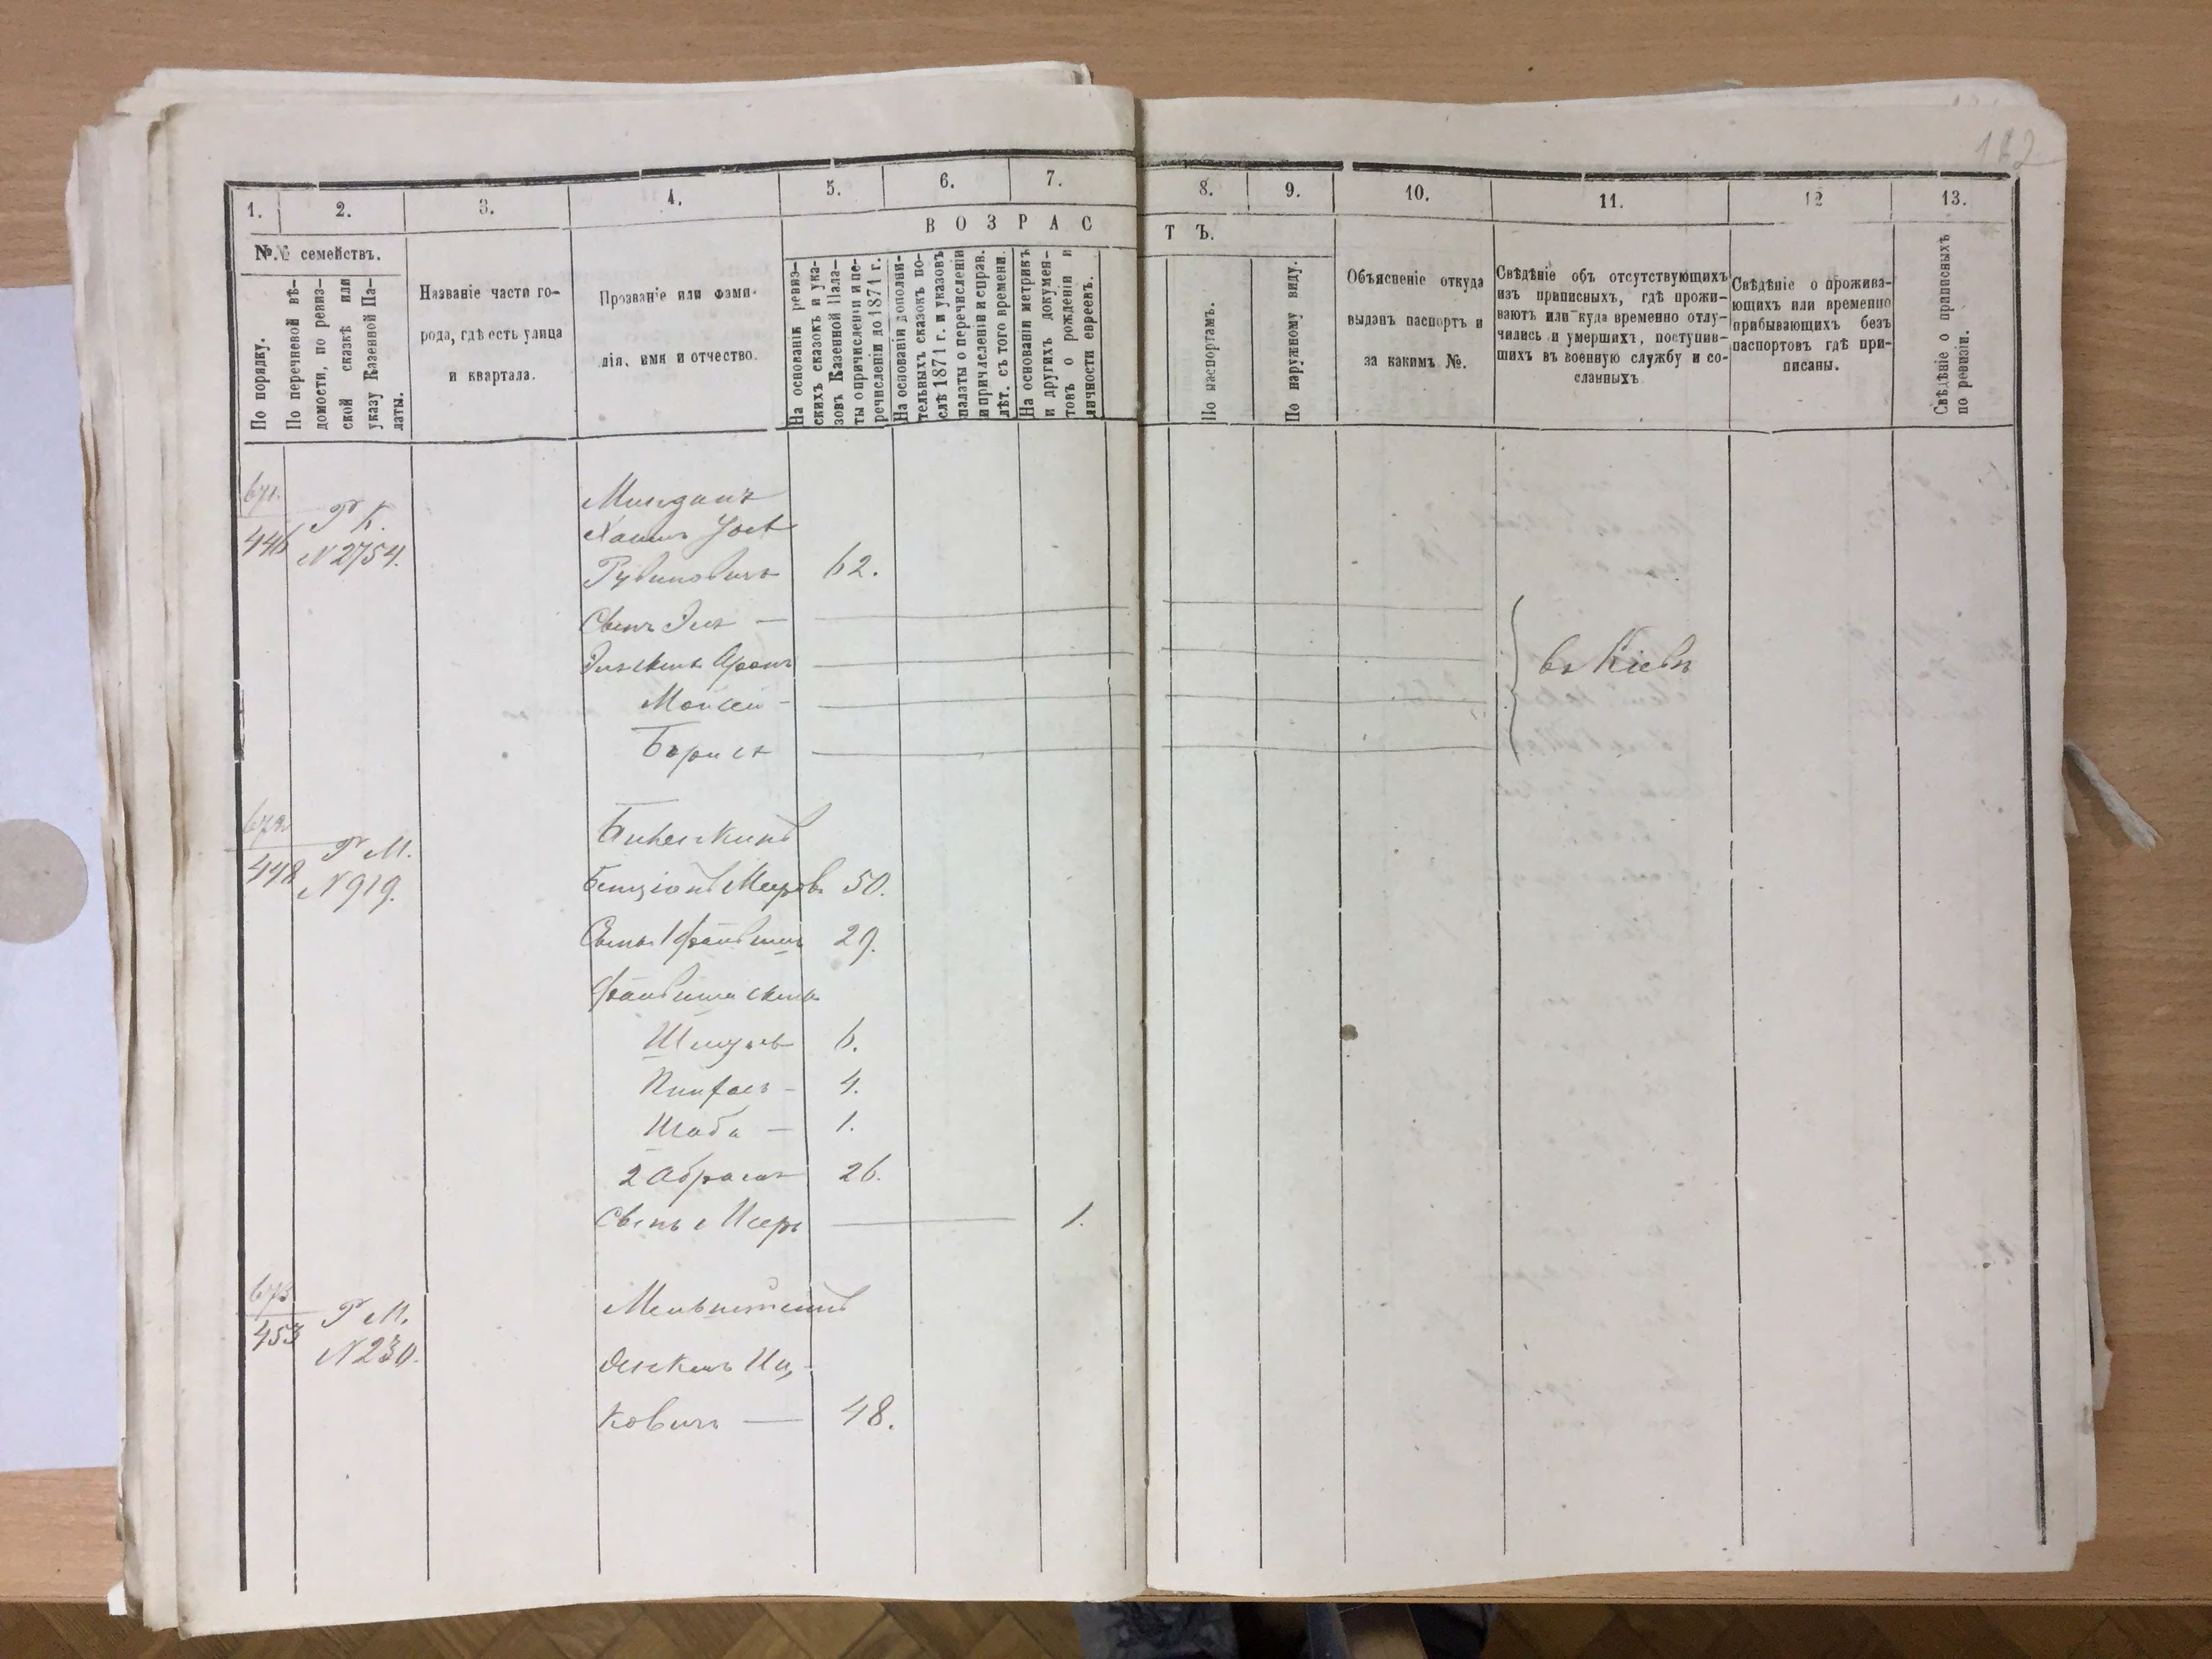 1.
2.
3.
4.
5.
6.
7.
8.
9.
10.
11.
12
13.
В О З Р А С
Т Ъ.
№.№ семействъ.
По порядку.
По перечневой вѣ-
домости, по ревиз-
ской сказкѣ или
указу Казенной Па-
латы.
Названіе части го-
рода, гдѣ есть улица
и квартала.
Прозваніе или фами-
лія, имя и отчество.
На основаніи ревиз-
скихъ сказокъ и ука-
зовъ Казенной Пала-
ты о причисленіи и пе-
речисленіи до 1871 г.
На основаніи дополни-
тельныхъ сказокъ по-
слѣ 1871 г. и указовъ
палаты о перечисленіи
и причисленіи и справ.
лѣт. съ того времени.
На основаніи метрикъ
и другихъ докумен-
товъ о рожденіи и
личности евреевъ.
По паспортамъ.
По наружному виду.
Объясненіе откуда
выданъ паспортъ и
за какимъ №.
Свѣдѣніе объ отсутствующихъ
изъ приписныхъ, гдѣ прожи-
ваютъ или куда временно отлу-
чились и умершихъ, поступив-
шихъ въ военную службу и со-
сланныхъ
Свѣдѣніе о прожива-
ющихъ или временно
прибывающихъ безъ
паспортовъ гдѣ при-
писаны.
Свѣдѣніе о приписныхъ
по ревизіи.
671.
446
Р К.
N 2754.
Хаимъ
Рувиновичъ 62.
Сынъ
Аронъ
Моисей -
Борисъ
въ Кіевѣ
672
448
Р М.
N 919.
Бенціонъ Мееров 50.
Сынъ 1 Файвишъ 29.
Файвиша сынъ
Шмуль 6.
Пинхас - 4.
Шаба — 1.
2 Абрамъ 26.
Сынъ Мееръ 1.
673
453
Р М.
N 230.
Иц-
ковичъ — 48.